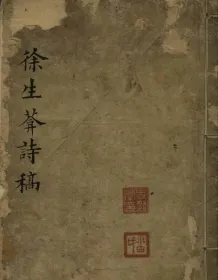 徐生葊詩稿